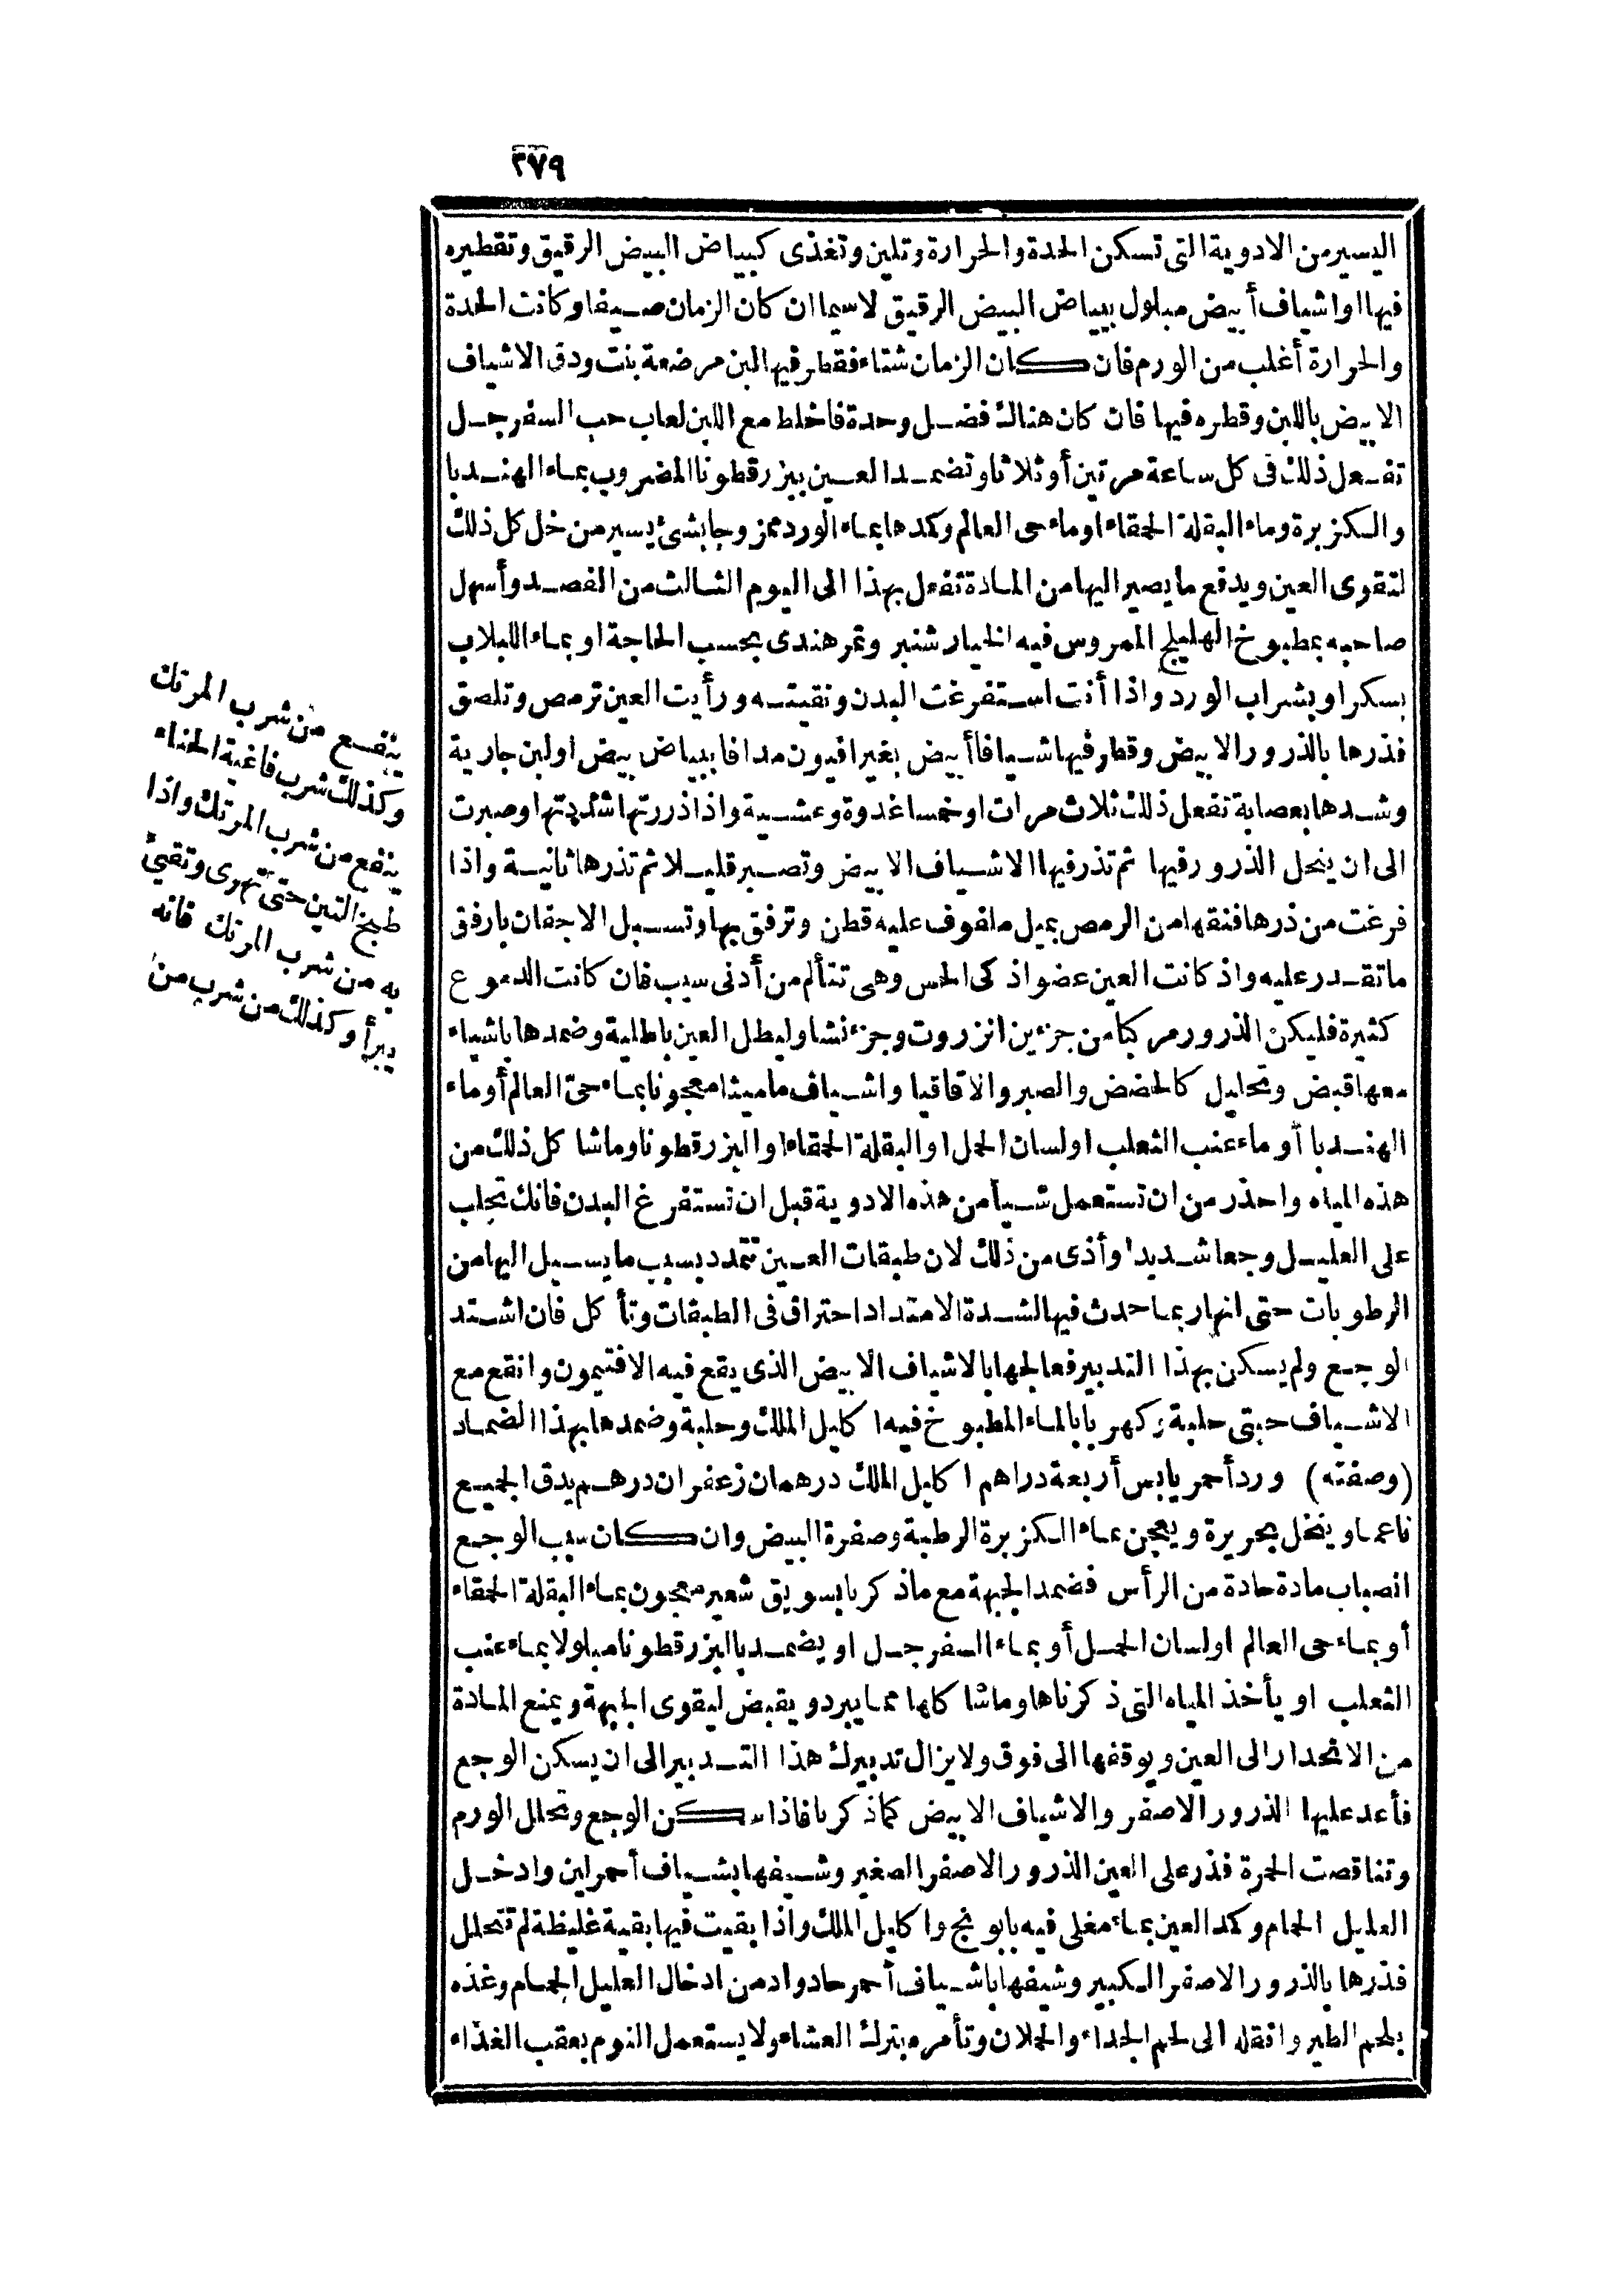 ٣٧٩
اليسير من الادوية التى تسكن الحدة والحرارة وتلين وتغذى كبياض البيض الرقيق وتقطيره
فيها او اشياف أبيض مبلول ببياض البيض الرقيق لا سيما ان كان الزمان صيفا وكانت الحدة
والحرارة أغلب من الورم فان كان الزمان شتاء فقطر فيها لبن مرضعة بنت ودق الاشياف
الابيض باللبن وقطره فيها فان كان هناك فضل وحدة فاخلط مع اللبن لعاب حب السفرجل
تفعل ذلك فى كل ساعة مرتين أو ثلاثا وتضمد العين ببزرقطونا المضروب بماء الهندبا
والكزبرة وماء البقلة الحمقاء او ماء حى العالم وكمدها بماء الورد ممزوجا بشئ يسير من خل كل ذلك
لتقوى العين ويدفع ما يصير اليها من المادة تفعل بهذا الى اليوم الثالث من الفصد وأسهل
صاحبه بمطبوخ الهليلج الممروس فيه الخيارشنبر وتمرهندى بحسب الحاجة او بماء اللبلاب
بسكر او بشراب الورد واذا أنت استفرغت البدن ونقيته ورأيت العين ترمص وتلصق
فذرها بالذرور الابيض وقطر فيها شيافا أبيض بغير افيون مدافا ببياض بيض او لبن جارية
وشدها بعصابة تفعل ذلك ثلاث مرات او خمسا غدوة وعشية واذا ذررتها شددتها وصبرت
الى ان ينحل الذرور فيها ثم تذر فيها الاشياف الابيض وتصبر قليلا ثم تذرها ثانية واذا
فرغت من ذرها فنقها من الرمص بميل ملفوف عليه قطن وترفق بها وتسبل الاجفان بارفق
ما تقدر عليه واذ كانت العين عضوا ذكى الحس وهى تتألم من أدنى سبب فان كانت الدموع
كثيرة فليكن الذرور مركبا من جزءين انزروت وجزء نشا وليطل العين باطلية وضمدها باشياء
معها قبض وتحليل كالحضض والصبر والاقاقيا واشياف ماميثا معجونا بماء حىّ العالم أو ماء
الهندبا أو ماء عنب الثعلب او لسان الحمل او البقلة الحمقاء او البزرقطونا وماشا كل ذلك من
هذه المياه واحذر من ان تستعمل شيأ من هذه الادوية قبل ان تستفرغ البدن فانك تجلب
على العليل وجعا شديدا وأذى من ذلك لان طبقات العين تتمدد بسبب ما يسيل اليها من
الرطوبات حتى انه ربما حدث فيها لشدة الامتداد احتراق فى الطبقات وتأكل فان اشتد
الوجع ولم يسكن بهذا التدبير فعالجها بالاشياف الابيض الذى يقع فيه الافتيمون وانقع مع
الاشياف حبتى حلبة وكهربا بالماء المطبوخ فيه اكليل الملك وحلبة وضمدها بهذا الضماد
(وصفته) ورد أحمر يابس أربعة دراهم اكليل الملك درهمان زعفران درهم يدق الجميع
ناعما وينخل بحريرة ويعجن بماء الكزبرة الرطبة وصفرة البيض وان كان سبب الوجع
انصباب مادة حادة من الرأس فضمد الجبهة مع ما ذكرنا بسويق شعير معجون بماء البقلة الحمقاء
أو بماء حى العالم او لسان الحمل أو بماء السفرجل او يضمد بالبزرقطونا مبلولا بماء عنب
الثعلب او يأخذ المياه التى ذكرناها وماشا كلها مما يبرد ويقبض ليقوى الجبهة ويمنع المادة
من الانحدار الى العين ويوقفها الى فوق ولا يزال تدبيرك هذا التدبير الى ان يسكن الوجع
فأعد عليها الذرور الاصفر والاشياف الابيض كما ذكرنا فاذا سكن الوجع وتحلل الورم
وتناقصت الحمرة فذر على العين الذرور الاصفر الصغير وشيفها بشياف أحمر لين وادخل
العليل الحمام وكمد العين بماء مغلى فيه بابونج واكليل الملك واذا بقيت فيها بقية غليظة لم تتحلل
فذرها بالذرور الاصفر الكبير وشيفها باشياف أحمر حاد وادمن ادخال العليل الحمام وغذه
بلحم الطير وانقله الى لحم الجداء والحملان وتأمره بترك العشاء ولا يستعمل النوم بعقب الغذاء
ينفع من شرب المرتك
وكذلك شرب فاغية الحناء
ينفع من شرب المرتك واذا
طبخ التين حتى تهرى وتقيئ
به من شرب المرتك فانه
يبرأ وكذلك من شرب من